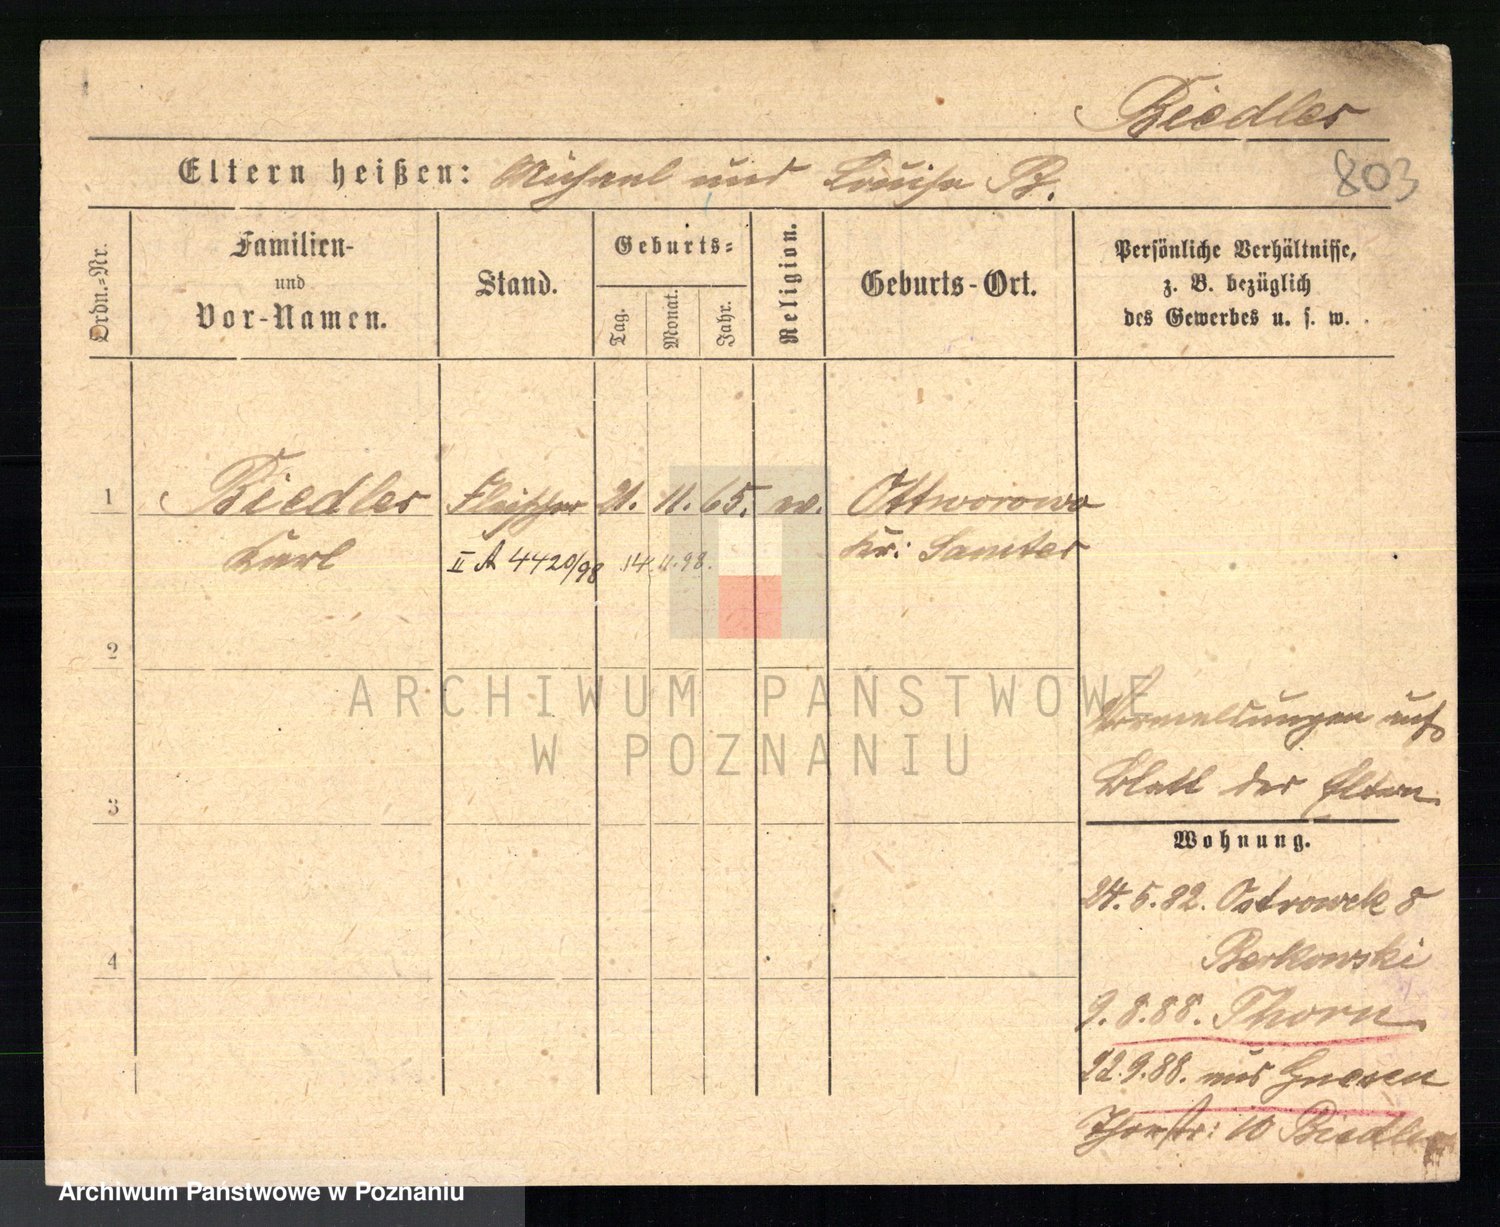 Biedler
803
Eltern heißen: Michael und Louise B.
Ordn.-Nr.
Familien-
und
Vor-Namen.
Stand.
Geburts-
Tag.
Monat.
Jahr.
Religion.
Geburts-Ort.
Persönliche Verhältnisse,
z. B. bezüglich
des Gewerbes u. s. w.
1 Biedler Fleischer 21. 11. 65. ev. Ottworowo
Karl II A 4420/98 14.11.98. Kr: Samter
2
ARCHIWUM PAŃSTWOWE
W POZNANIU
auf
3
Blatt der Eltern
Wohnung.
24.5.82. Ostrowek 8
Berkowski
4
9.8.88. Thorn
22.9.88. aus Gnesen
Thorstr: 10 Biedler
Archiwum Państwowe w Poznaniu